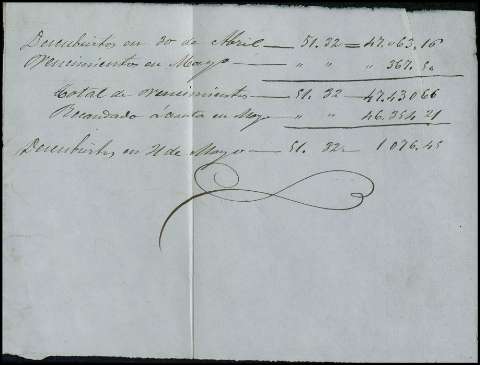 Descubiertos en 30 de Abril — 51.32 = 47.063.16
Vencimientos en Mayo — " " " 367.50
Total de Vencimientos — 51.32 — 47.430 66
Recaudado á cuenta en Mayo " " 46.354 21
Descubiertos en 31 de Mayo — 51.32 — 1 076.45